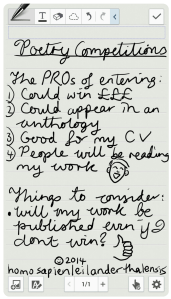 Poetry Competitions
The PROs of entering:
1) Could win £££
2) Could appear in an
anthology
3) Good for my CV
4) People will be reading
my work
Things to consider:
• will my work be
published even if I
dont win?
© 2014
homosapienleilanderthalensis
1/1